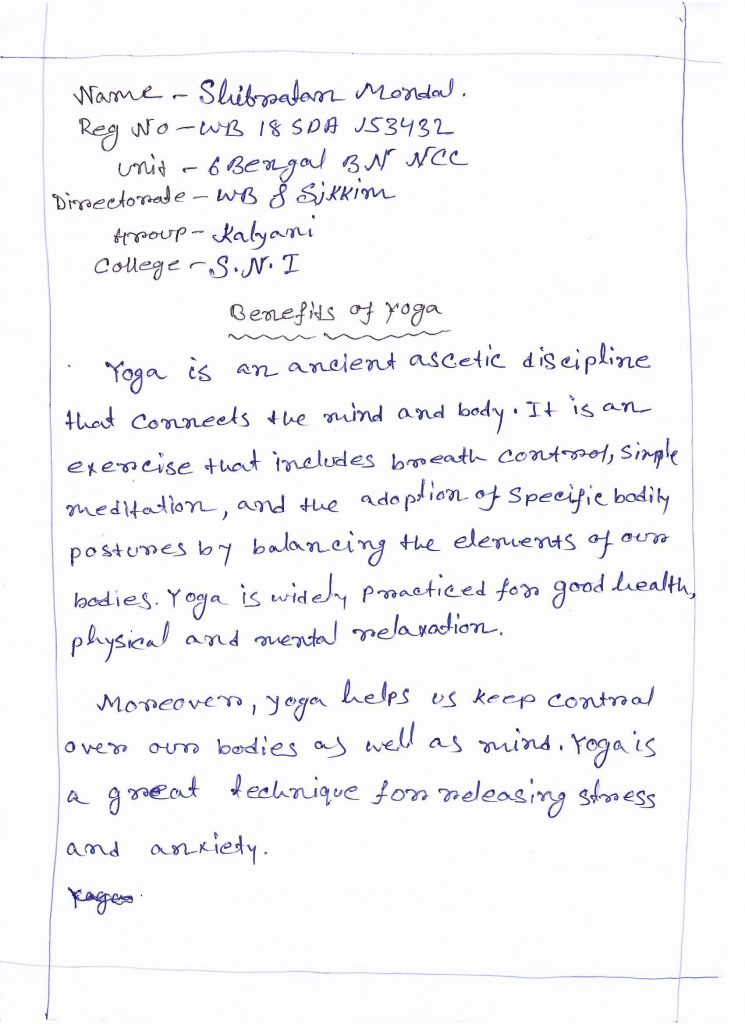 Name - Shibratan Mondal.
Reg No - WB 18 SDA 153432
Unit - 6 Bengal BN NCC
Directorate - WB & Sikkim
Group - Kalyani
College - S.N.I
Benefits of Yoga
Yoga is an ancient ascetic discipline
that connects the mind and body. It is an
exercise that includes breath control, simple
meditation, and the adoption of specific bodily
postures by balancing the elements of our
bodies. Yoga is widely practiced for good health,
physical and mental relaxation.
Moreover, yoga helps us keep control
over our bodies as well as mind. Yoga is
a great technique for releasing stress
and anxiety.